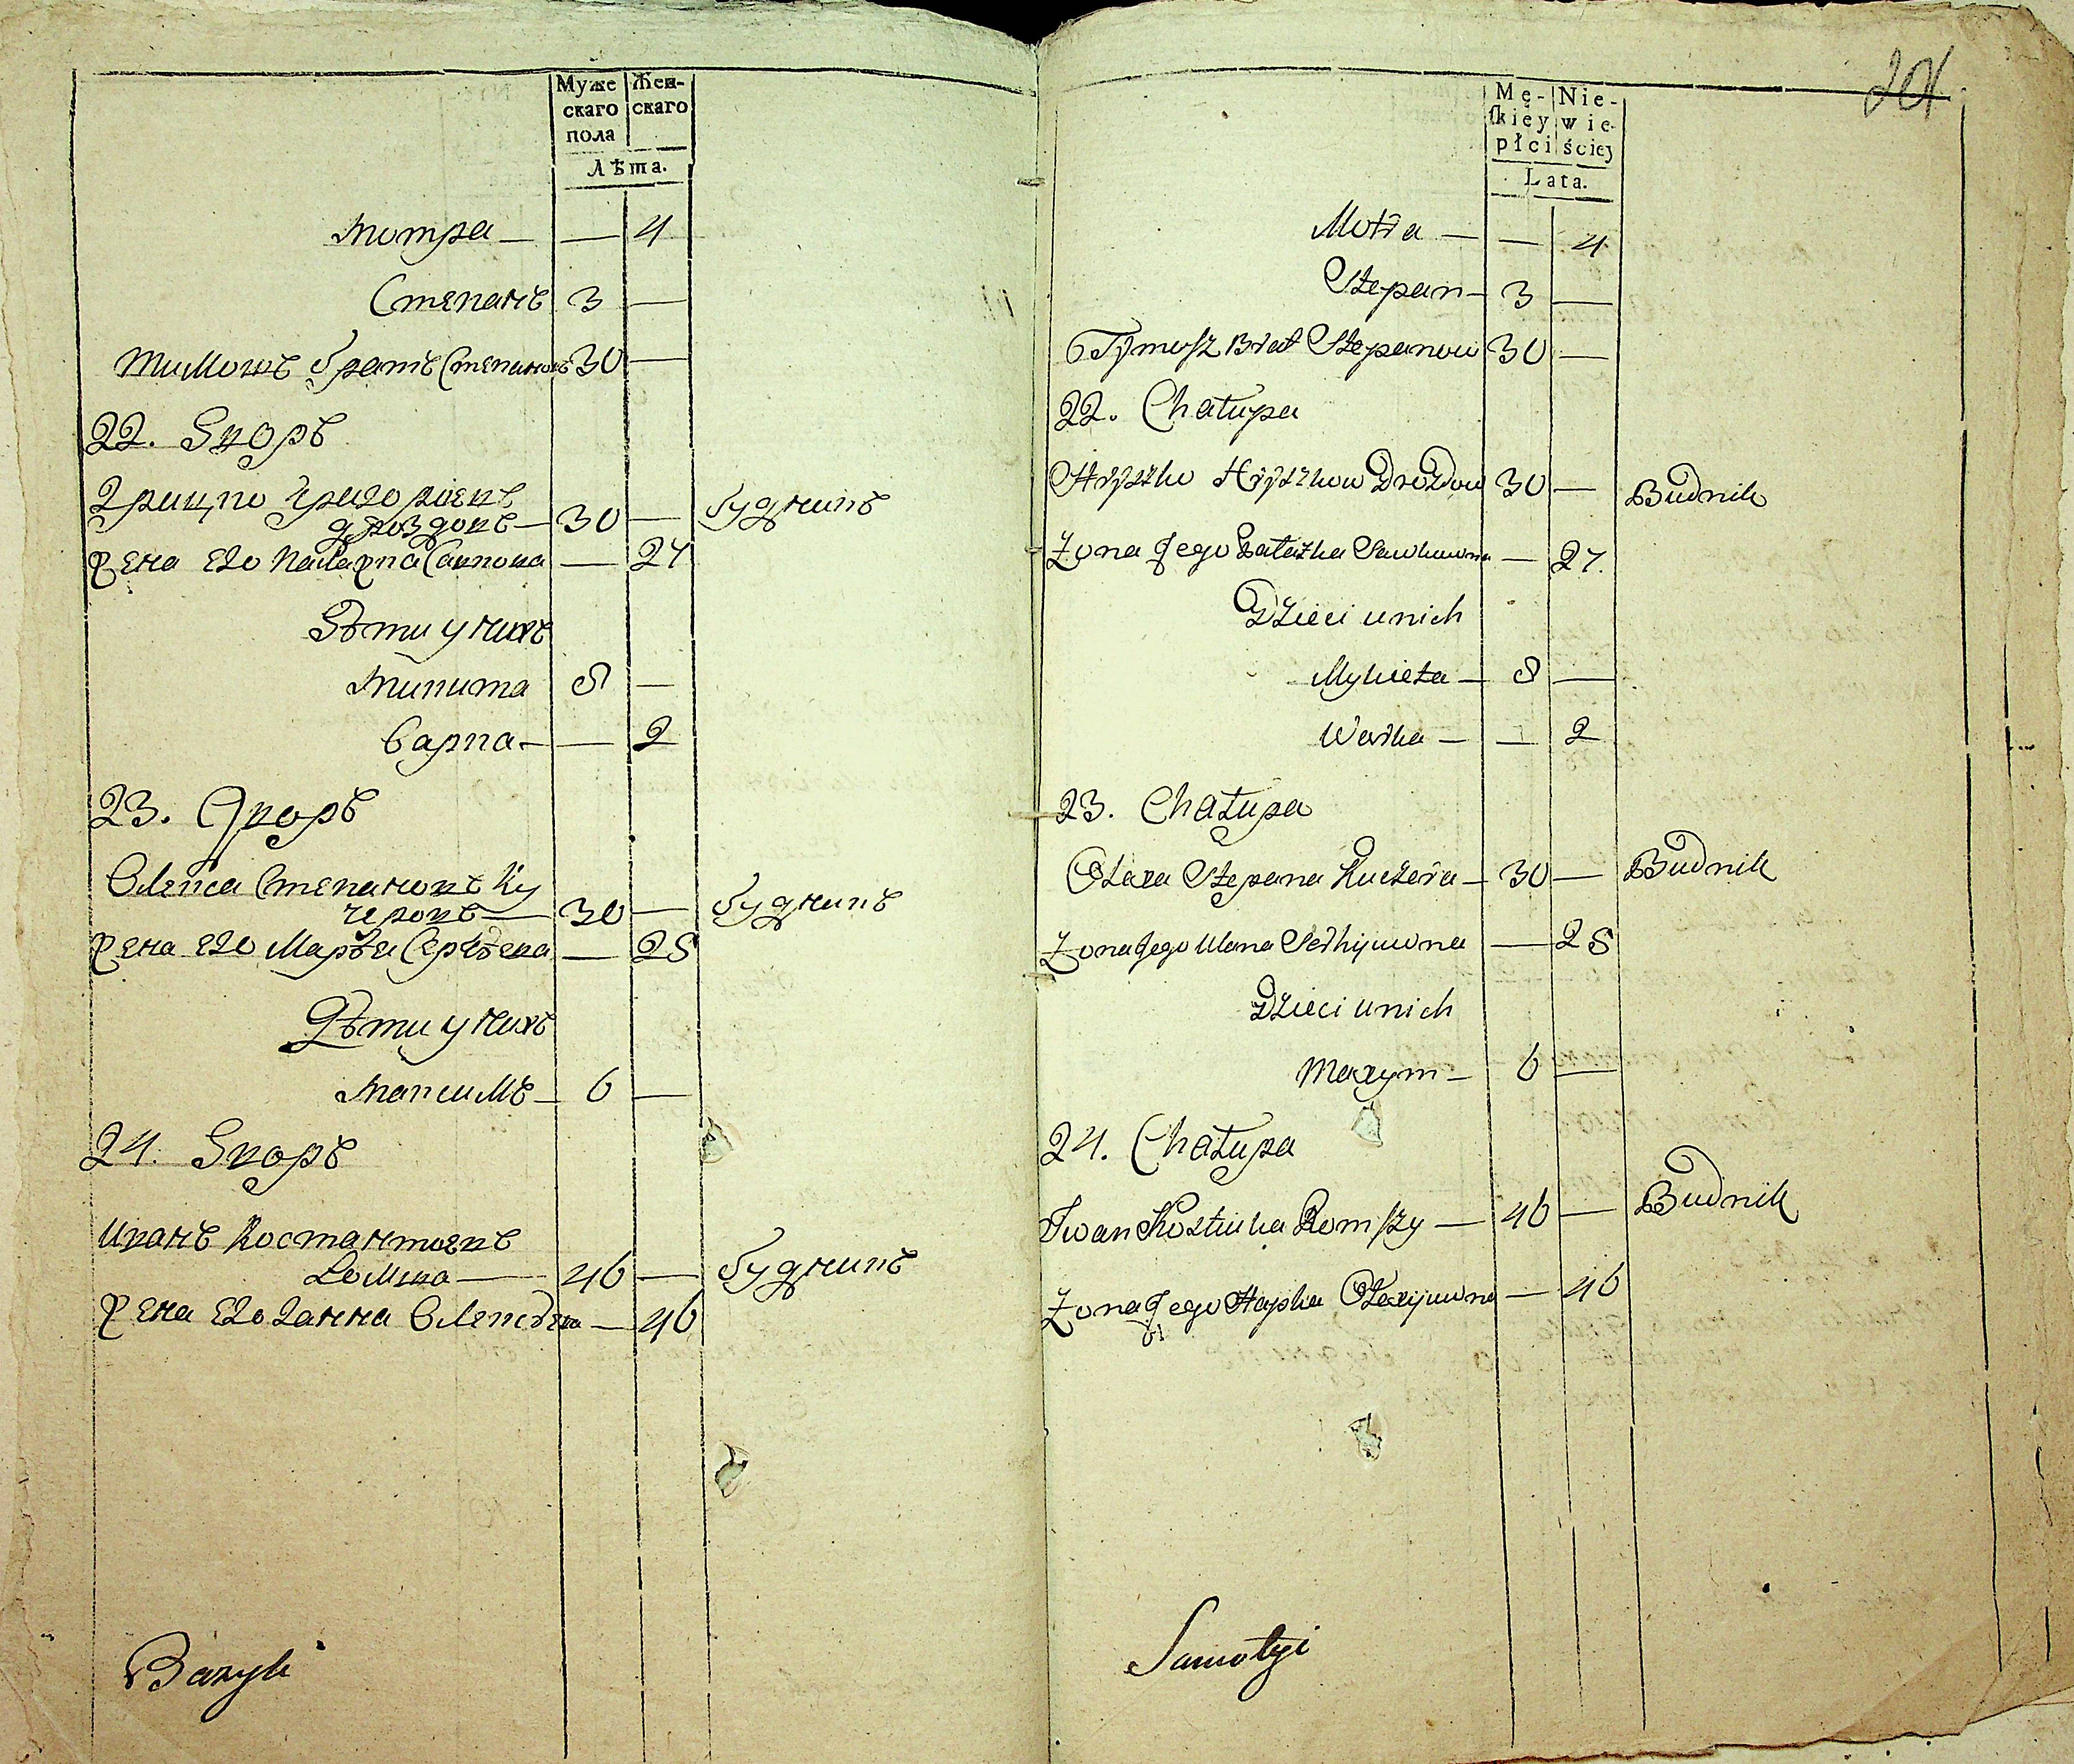 Муже
скаго
пола
Жен-
скаго
Лѣта.
Мотра — — 4
Степанъ 3 —
Тимошъ братъ Степановъ 30 —
22. Дворъ
Грицко Григориевъ
Дроздовъ — 30 — будникъ
Жена его Палажка Савкова — 27
Дѣти у нихъ
Микита 8 —
Варка — — 2
23. Дворъ
Олекса Степановъ Ку
черовъ — 30 — будникъ
Жена его Марья Сергѣева — 25
Дѣти у нихъ
Максимъ — 6 —
24. Дворъ
Иванъ Костантиевъ
— 46 — будникъ
Жена его Ганна Олексѣева — 46
Bazyli
201
Mę-
ſkiey
płci
Nie-
wie-
ściey
Lata.
Motra — — 4
Stepan — 3 —
Tymosz Brat Stepanow 30 —
22. Chałupa
Hryszko Hryszkow Drozdow 30 — Budnik
Żona Jego Pałażka Sawkuwna — 27.
Dzieci u nich
Mykieta — 8 —
Warka — — 2
23. Chałupa
Olexa Stepana Kuczera — 30 — Budnik
Żona Jego Ulana Serhijuwna — 25
Dzieci u nich
Maxym — 6 —
24. Chałupa
Iwan Kostiuka Romszy — 46 — Budnik
Żona Jego Hapka Olexijuwna — 46
Samotyi